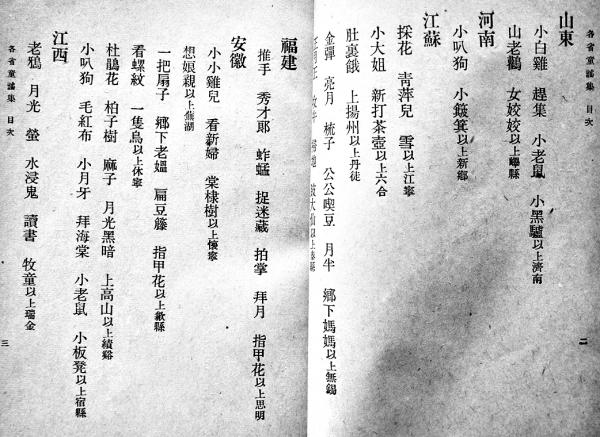 各省童謠集 目次
山東
小白雞 趕集 小老鼠 小黑驢以上濟南
山老鸛 女姣姣以上嶧縣
河南
小叭狗 小簸箕以上新鄉
江蘇
採花 青萍兒 雪以上江寧
小大姐 新打茶壺以上六合
肚裏餓 上揚州以上丹徒
金彈 亮月 梳子 公公喫豆 月半 鄉下媽媽以上無錫
二
福建
推手 秀才郎 蚱蜢 捉迷藏 拍掌 拜月 指甲花以上思明
安徽
小小雞兒 看新婦 棠棣樹以上懷寧
想娘親以上蕪湖
一把扇子 鄉下老媼 扁豆籐 指甲花以上歙縣
看螺紋 一隻鳥以上休寧
杜鵑花 柏子樹 麻子 月光黑暗 上高山以上績谿
小叭狗 毛紅布 小月牙 拜海棠 小老鼠 小板凳以上宿縣
江西
老鴉 月光 螢 水浸鬼 讀書 牧童以上瑞金
各省童謠集 目次
三